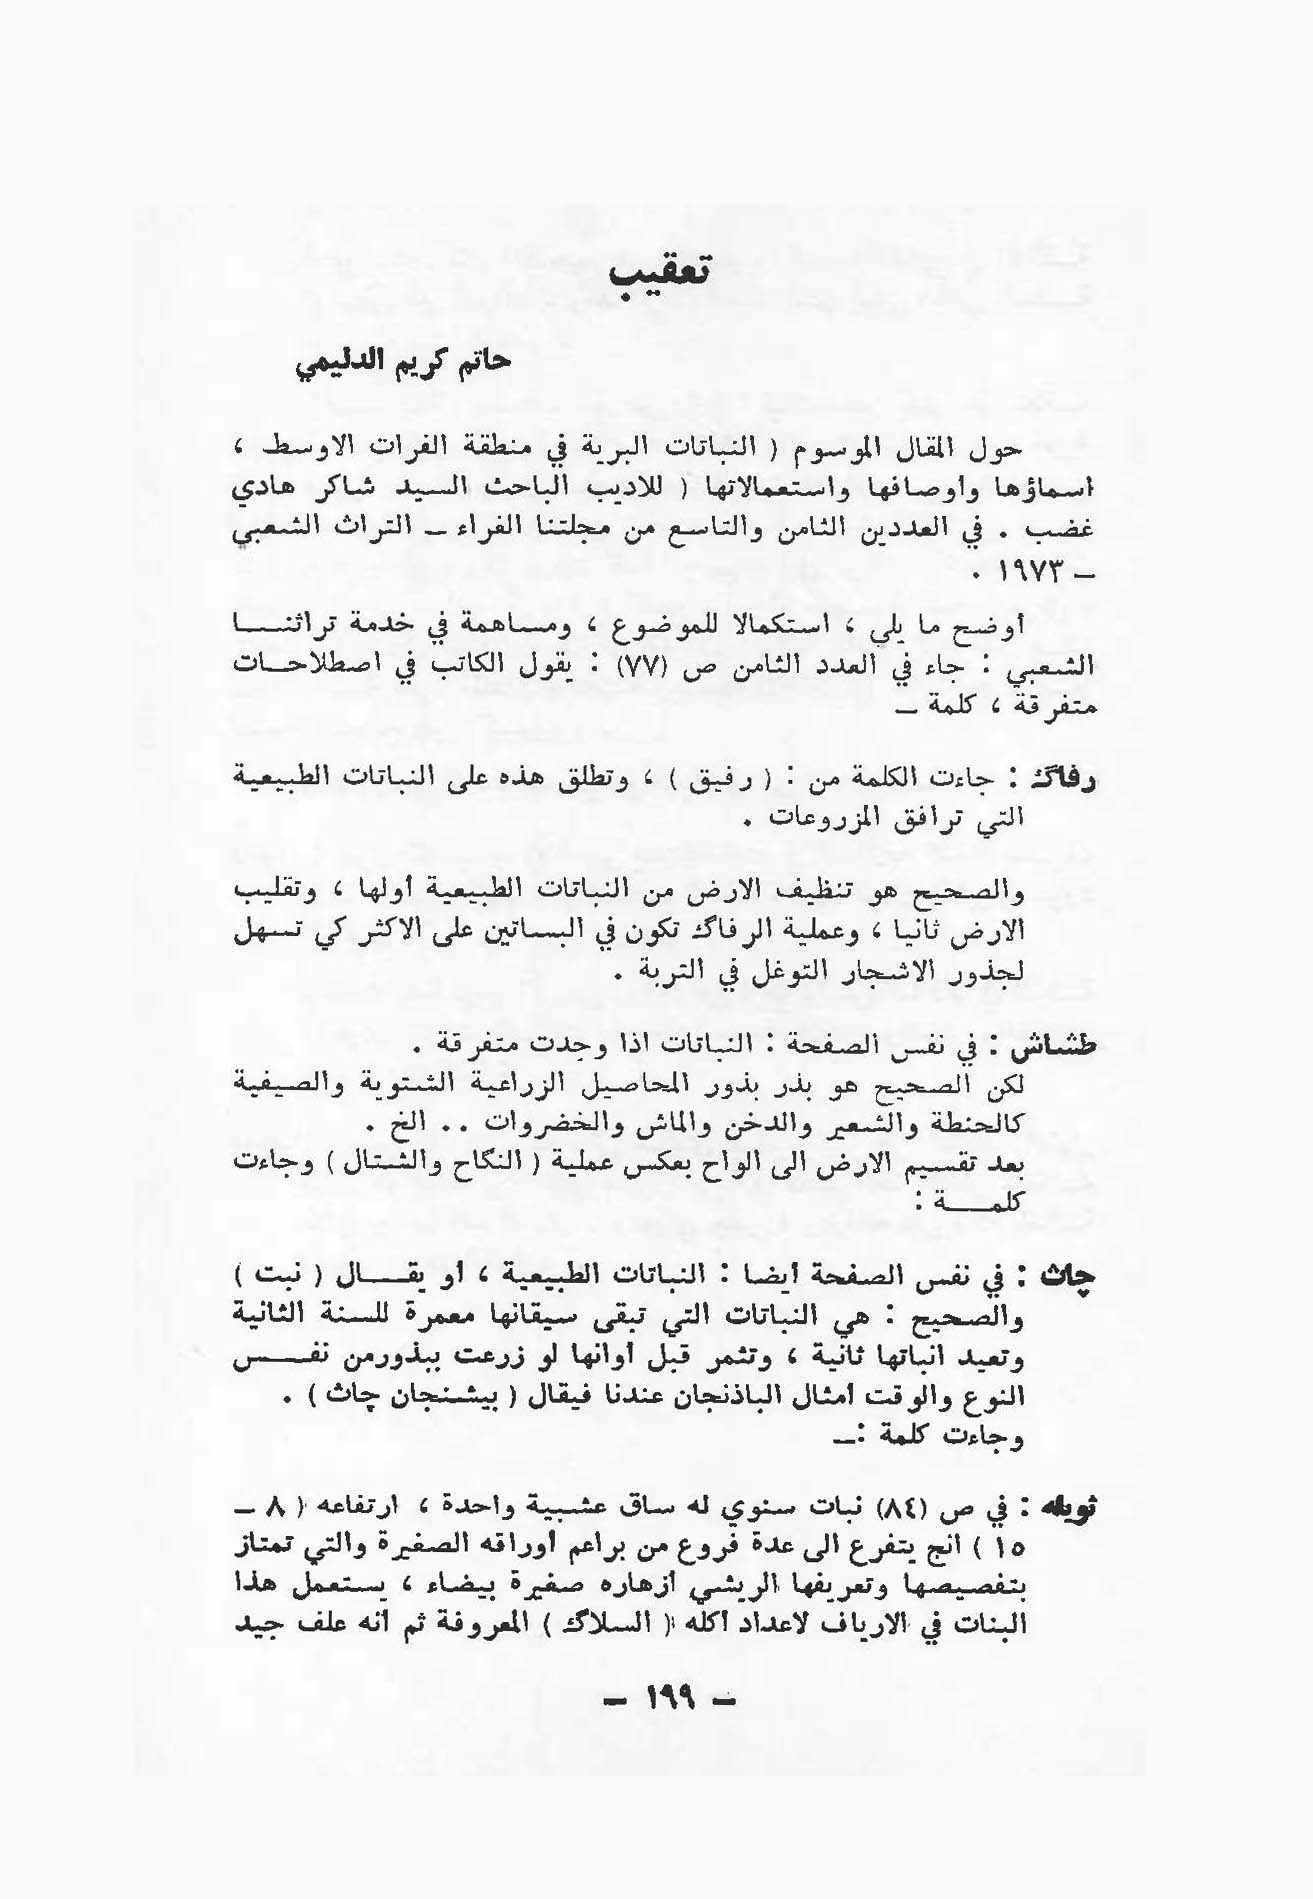 تعقيب
حاتم كريم الدليمي
حول المقال الموسوم ( النباتات البرية في منطقة الفرات الاوسط ،
اسماؤها وأوصافها واستعمالاتها ( للاديب الباحث السيد شاكر هادي
غضب . في العددين الثامن والتاسع من مجلتنا الغراء ــ التراث الشعبي
ــ ١٩٧٣ .
أوضح ما يلي ، استكمالا للموضوع ، ومساهمة في خدمة تراثنـــا
الشعبي : جاء في العدد الثامن ص (٧٧) : يقول الكاتب في اصطلاحــات
متفرقة ، كلمة ــ
رفاگ : جاءت الكلمة من : ( رفيق ) ، وتطلق هذه على النباتات الطبيعية
التي ترافق المزروعات .
والصحيح هو تنظيف الارض من النباتات الطبيعية أولها ، وتقليب
الارض ثانيا ، وعملية الرفاگ تكون في البساتين على الاكثر كي تسهل
لجذور الاشجار التوغل في التربة .
طشاش : في نفس الصفحة : النباتات اذا وجدت متفرقة .
لكن الصحيح هو بذر بذور المحاصيل الزراعية الشتوية والصيفية
كالحنطة والشعير والدخن والماش والخضروات .. الخ .
بعد تقسيم الارض الى الواح بعكس عملية ( النگاح والشتال ) وجاءت
كلمـــة :
چاث : في نفس الصفحة أيضا : النباتات الطبيعية ، أو يقـــال ( نبت )
والصحيح : هي النباتات التي تبقى سيقانها معمرة للسنة الثانية
وتعيد انباتها ثانية ، وتثمر قبل أوانها لو زرعت ببذورمن نفـــس
النوع والوقت أمثال الباذنجان عندنا فيقال ( بيشنجان چاث ) .
وجاءت كلمة :ــ
ثويله : في ص (٨٤) نبات سنوي له ساق عشبية واحدة ، ارتفاعه ( ٨ ــ
١٥ ) انج يتفرع الى عدة فروع من براعم أوراقه الصغيرة والتي تمتاز
بتفصيصها وتعريفها الريشي أزهاره صغيرة بيضاء ، يستعمل هذا
البنات في الارياف لاعداد أكله ( السلاگ ) المعروفة ثم أنه علف جيد
ــ ١٩٩ ــ